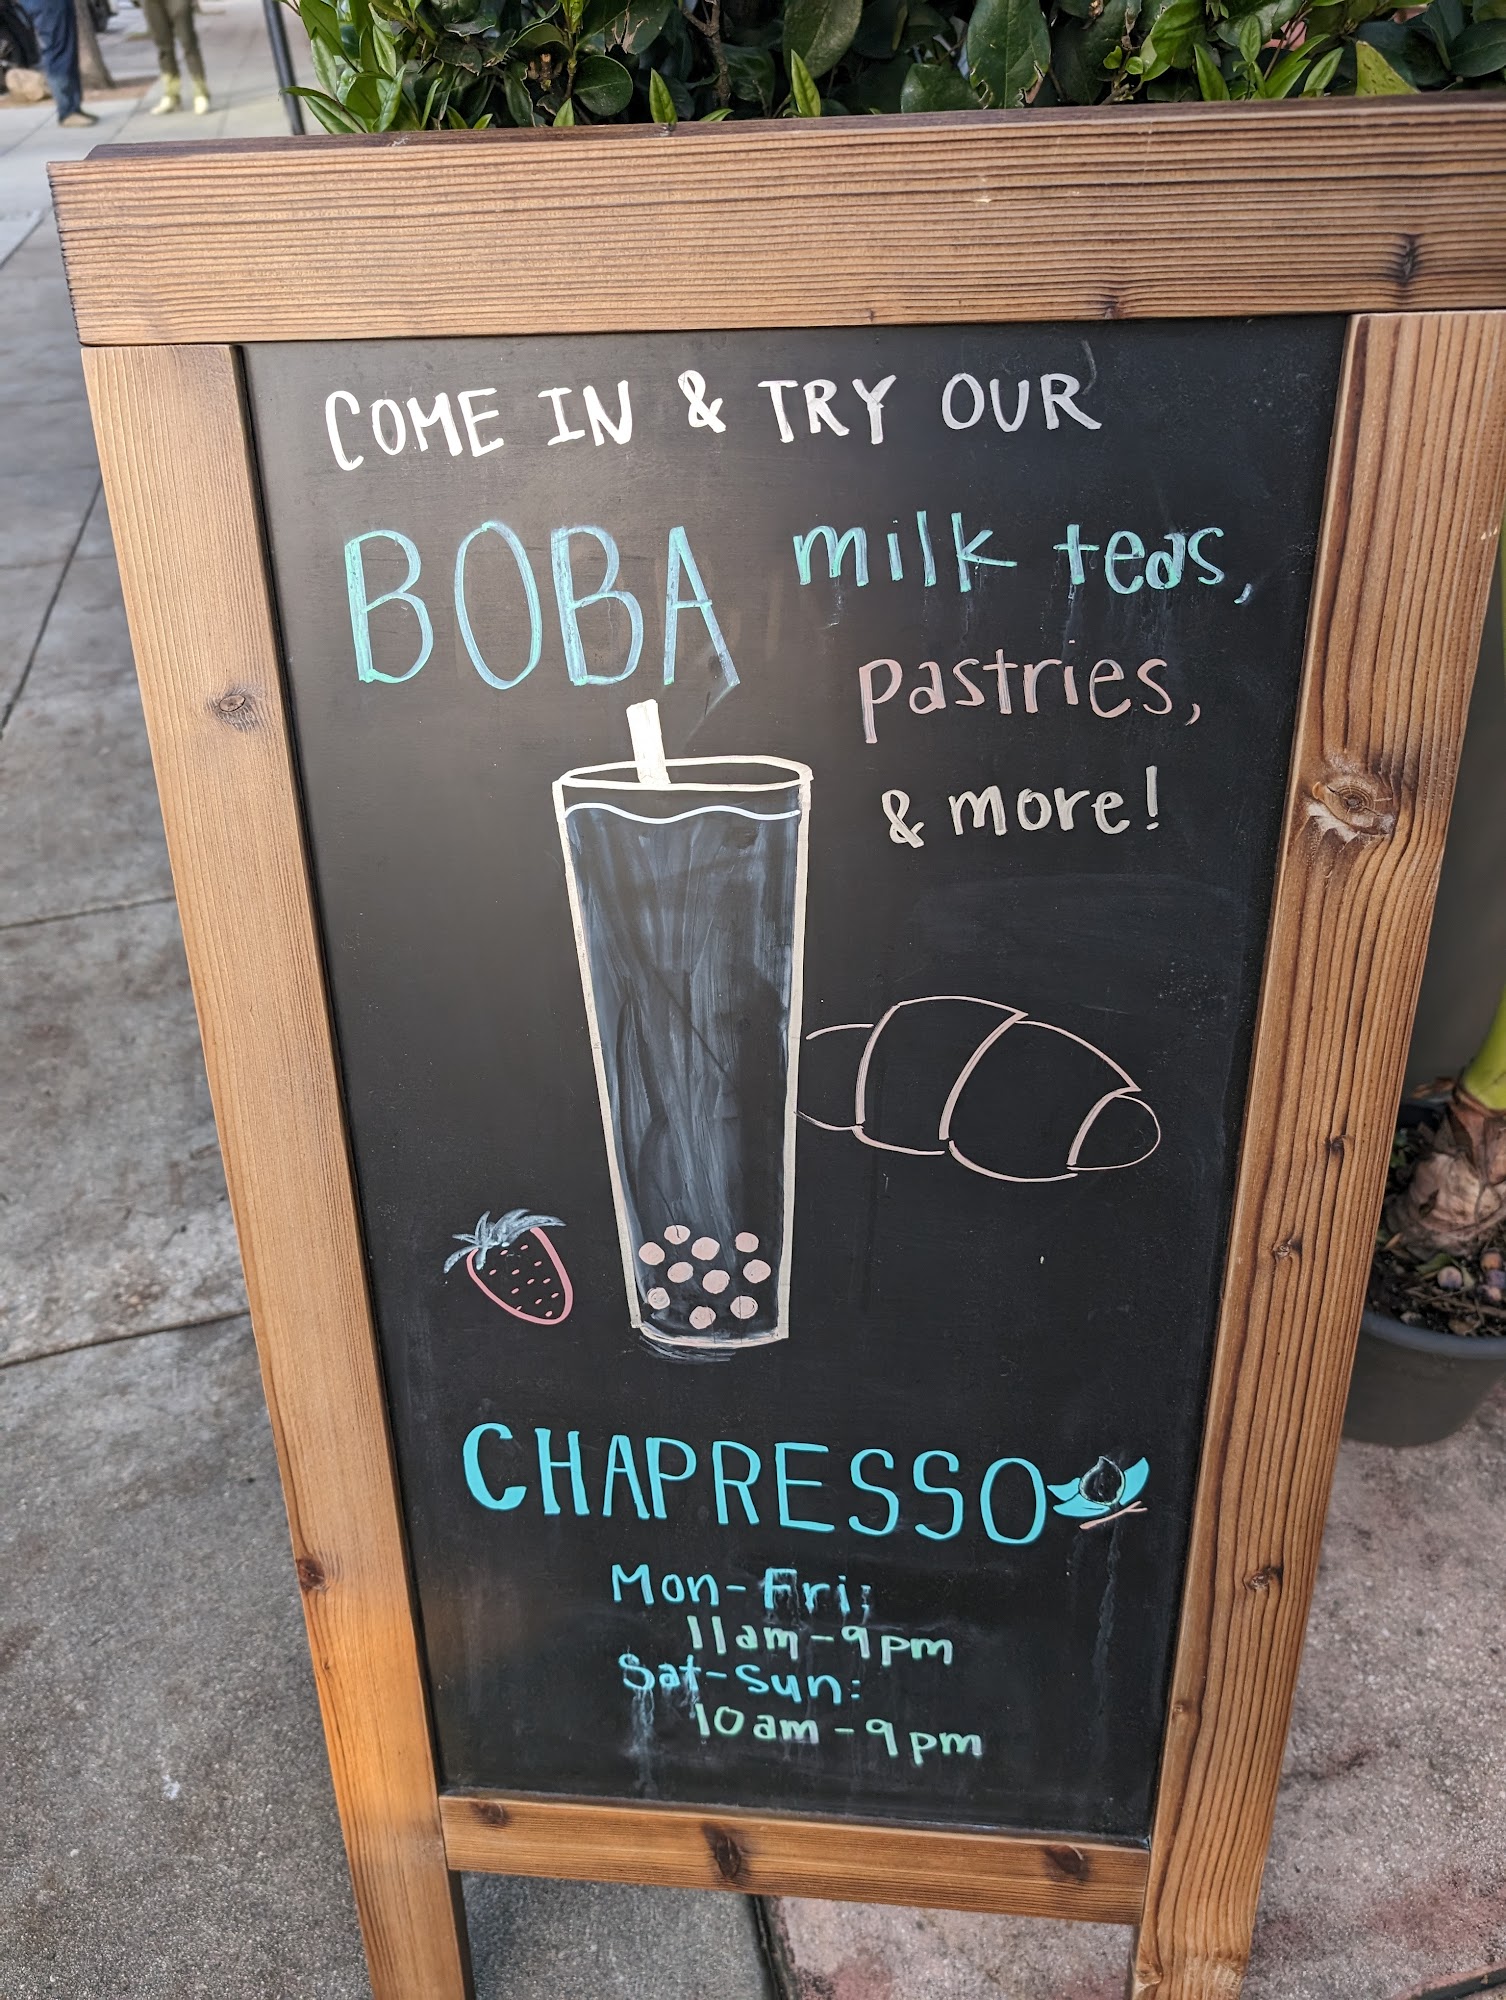 COME IN & TRY OUR
BOBA milk teas,
pastries,
& more!
CHAPRESSO
Mon-Fri:
11am-9pm
Sat-Sun:
10am-9pm